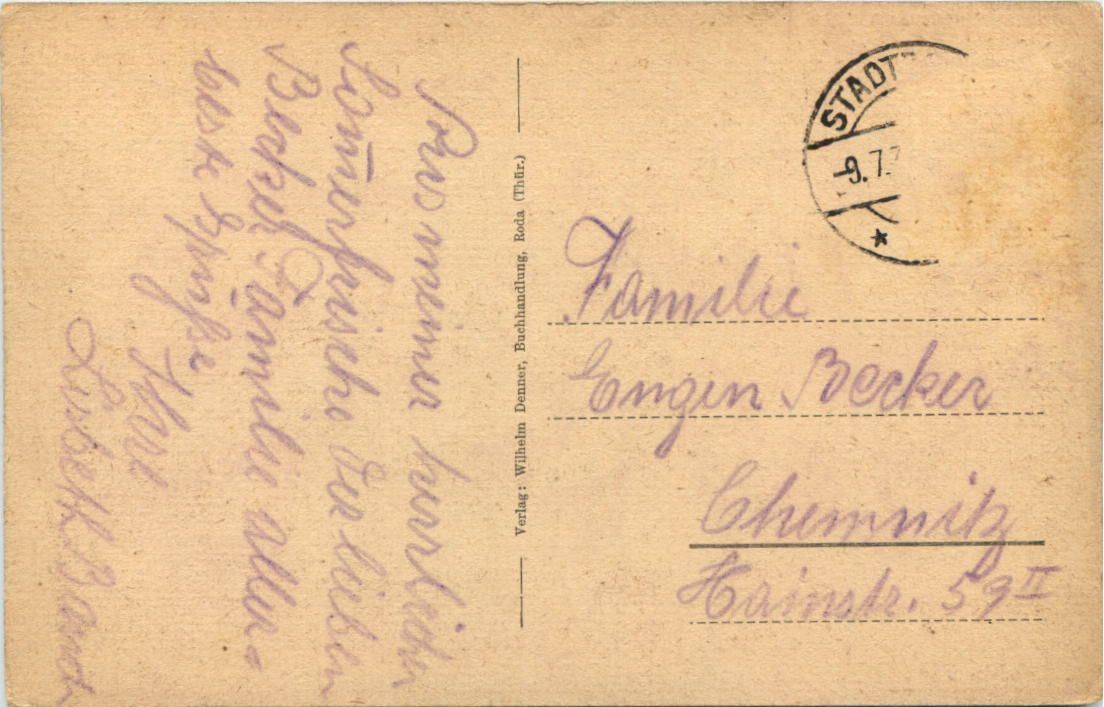 Aus meiner herrlichen
Som̅erfrische der lieben
Becker Familie aller-
beste Grüße
Ihre
Lisbeth Band
Verlag: Wilhelm Denner, Buchhandlung, Roda (Thür.)
STADT
-9.7.
Familie
Eugen Becker
Chemnitz
Hainstr. 59 II